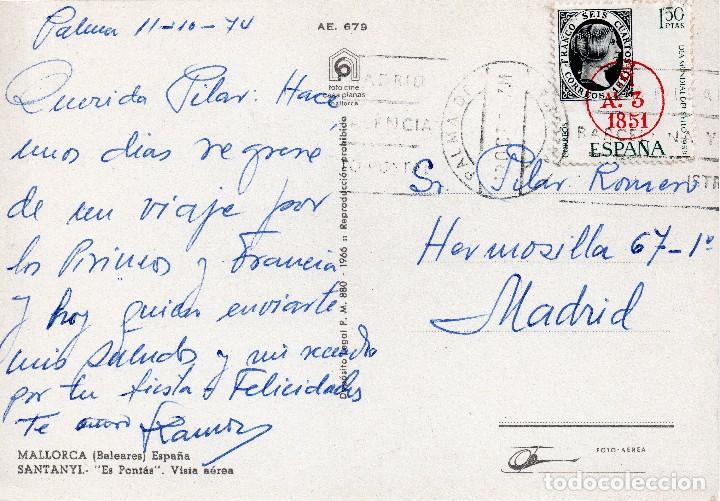 Palma 11-10-74
AE. 679
foto cine
casa planas
mallorca
Querida Pilar: Hace
unos dias regresé
de un viaje por
los Pirineos y Francia
y hoy quiero enviarte
mis saludos y mi recuerdo
por tu fiesta. Felicidades
Te
Ramon
MALLORCA (Baleares) España
SANTANYI.- "Es Pontás". Vista aérea
Depósito Legal P. M. 880 - 1966 :: Reproducción prohibida
PALMA D
FRANCO SEIS CUARTOS
CORREOS 1850
1'50
PTAS
DIA MUNDIAL DEL SELLO
A. 3
1851
CORREOS
ESPAÑA
Sr. Pilar Romero
Hermosilla 67-1º
Madrid
FOTO-AÉREA
todocoleccion.net